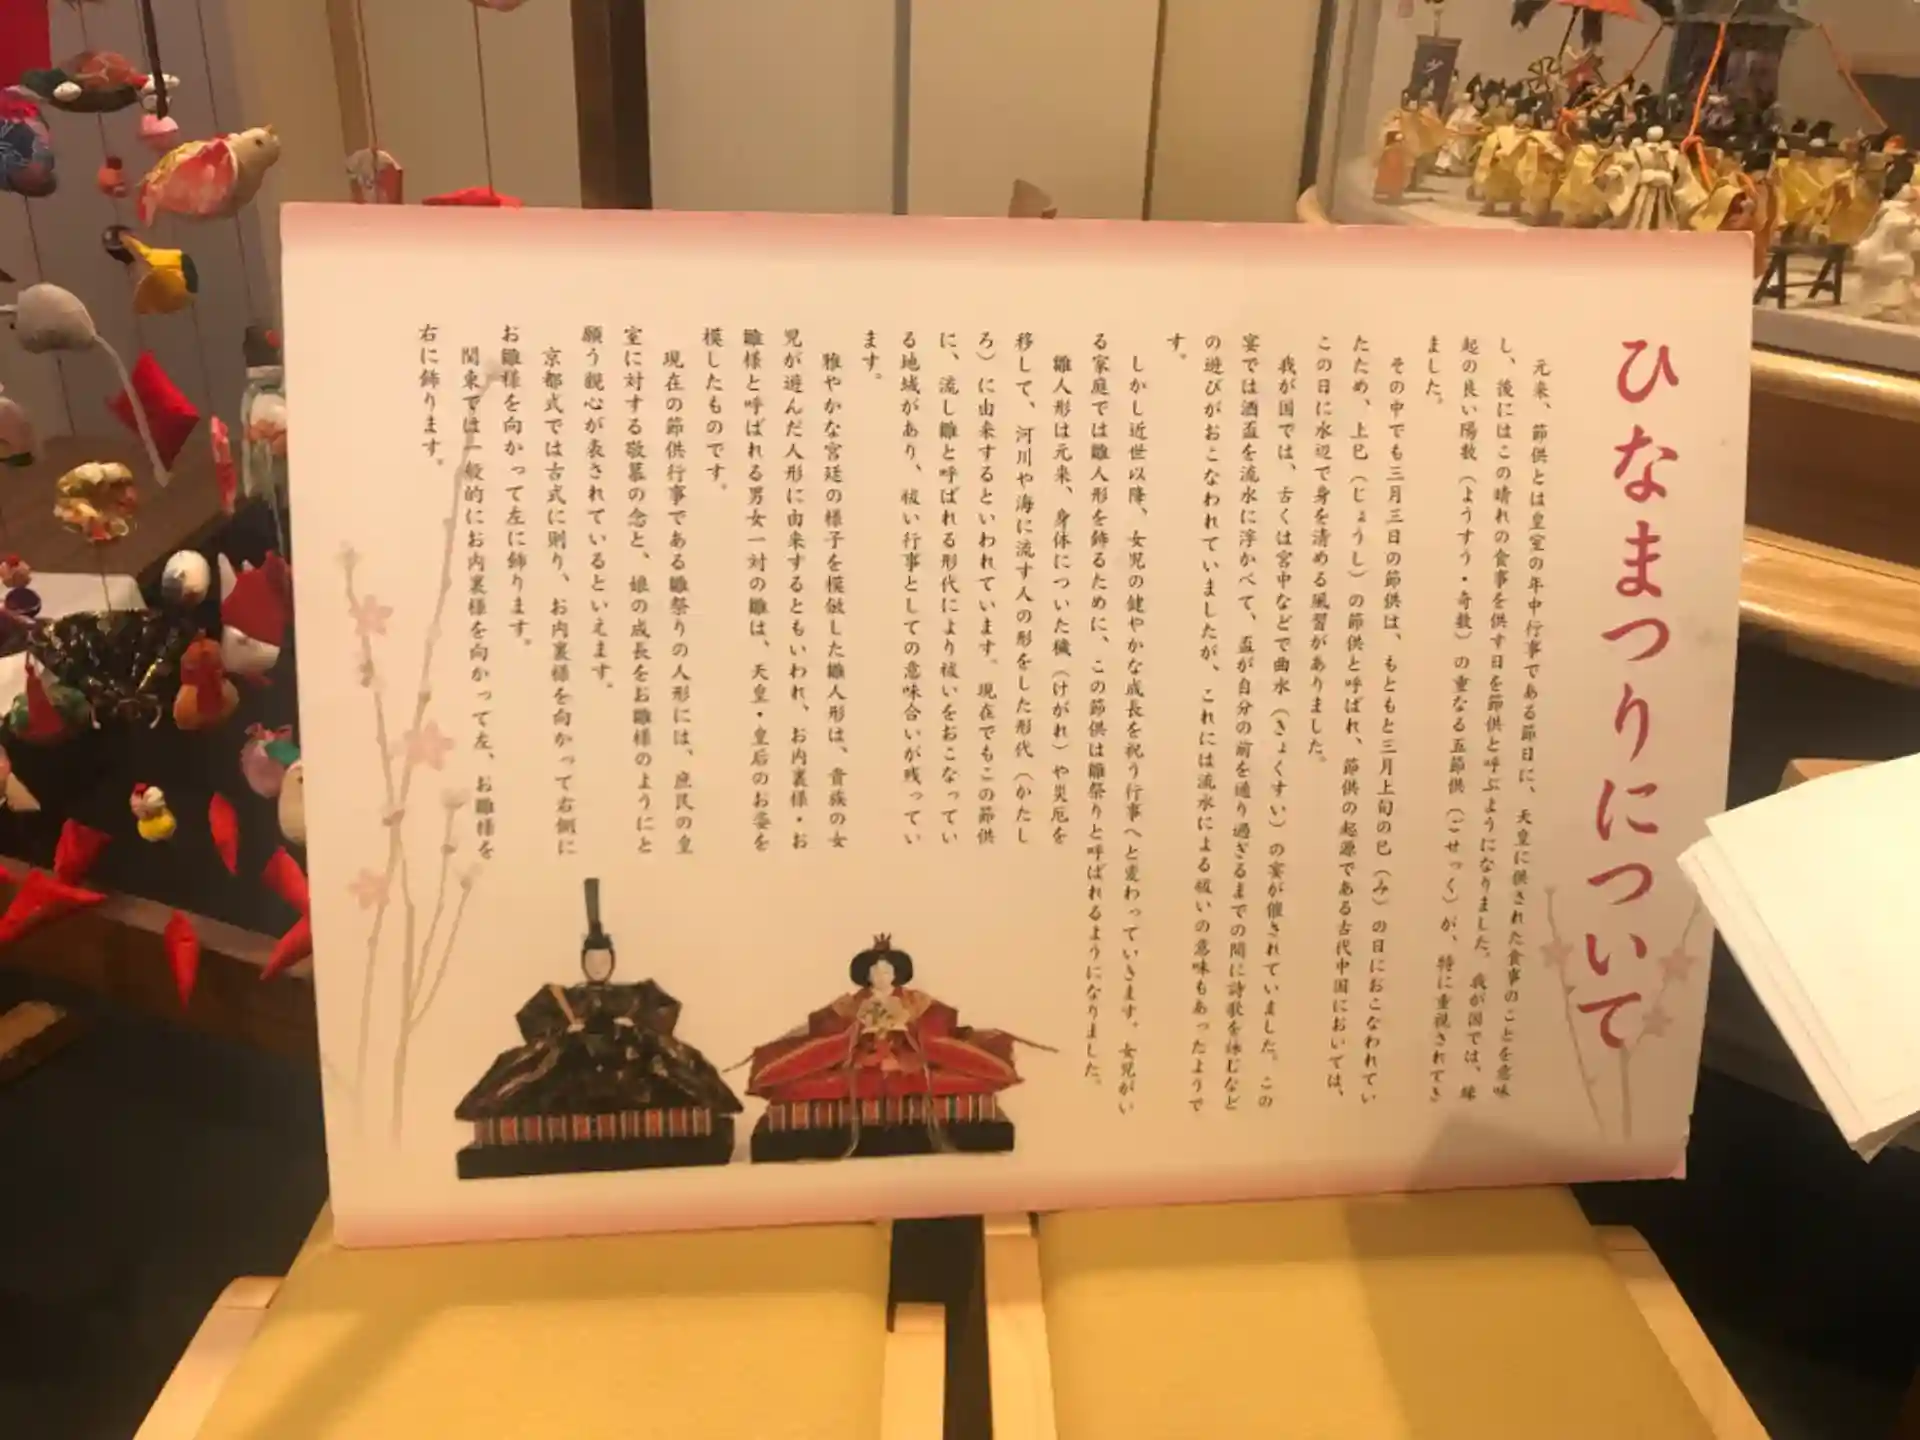 ひなまつりについて
元来、節供とは皇室の年中行事である節日に、天皇に供された食事のことを意味
し、後にはこの晴れの食事を供す日を節供と呼ぶようになりました。我が国では、縁
起の良い陽数（ようすう・奇数）の重なる五節供（ごせっく）が、特に重視されてき
ました。
その中でも三月三日の節供は、もともと三月上旬の巳（み）の日におこなわれてい
たため、上巳（じょうし）の節供と呼ばれ、節供の起源である古代中国においては、
この日に水辺で身を清める風習がありました。
我が国では、古くは宮中などで曲水（きょくすい）の宴が催されていました。この
宴では酒盃を流水に浮かべて、盃が自分の前を通り過ぎるまでの間に詩歌を詠むなど
の遊びがおこなわれていましたが、これには流水による祓いの意味もあったようで
す。
しかし近世以降、女児の健やかな成長を祝う行事へと変わっていきます。女児がい
る家庭では雛人形を飾るために、この節供は雛祭りと呼ばれるようになりました。
雛人形は元来、身体についた穢（けがれ）や災厄を
移して、河川や海に流す人の形をした形代（かたし
ろ）に由来するといわれています。現在でもこの節供
に、流し雛と呼ばれる形代により祓いをおこなってい
る地域があり、祓い行事としての意味合いが残ってい
ます。
雅やかな宮廷の様子を模倣した雛人形は、貴族の女
児が遊んだ人形に由来するともいわれ、お内裏様・お
雛様と呼ばれる男女一対の雛は、天皇・皇后のお姿を
模したものです。
現在の節供行事である雛祭りの人形には、庶民の皇
室に対する敬慕の念と、娘の成長をお雛様のようにと
願う親心が表されているといえます。
京都式では古式に則り、お内裏様を向かって右側に
お雛様を向かって左に飾ります。
関東では一般的にお内裏様を向かって左、お雛様を
右に飾ります。